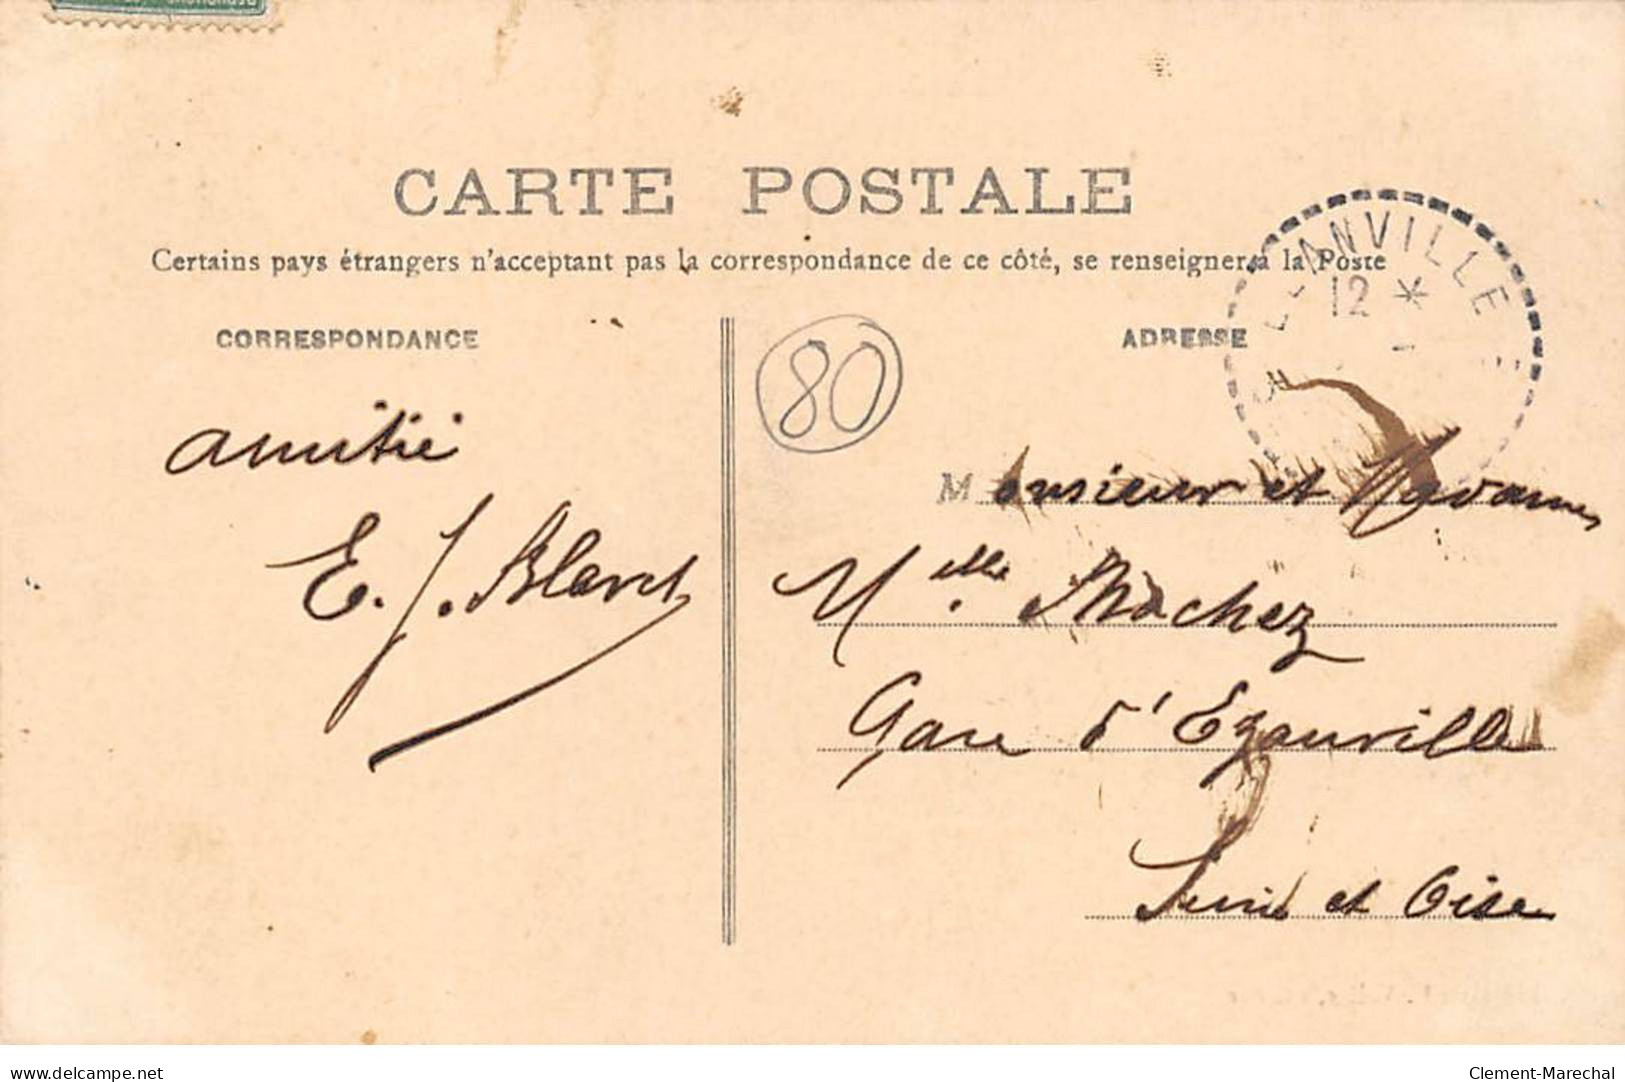 CARTE POSTALE
Certains pays étrangers n'acceptant pas la correspondance de ce côté, se renseigner à la Poste
CORRESPONDANCE
ADRESSE
EZANVILLE
12 *
80
amitié
E. J. Blanch
Monsieur et Madame
Melle Machez
Gare d'Ezanville
Seine et Oise
delcampe.net
Clement-Marechal